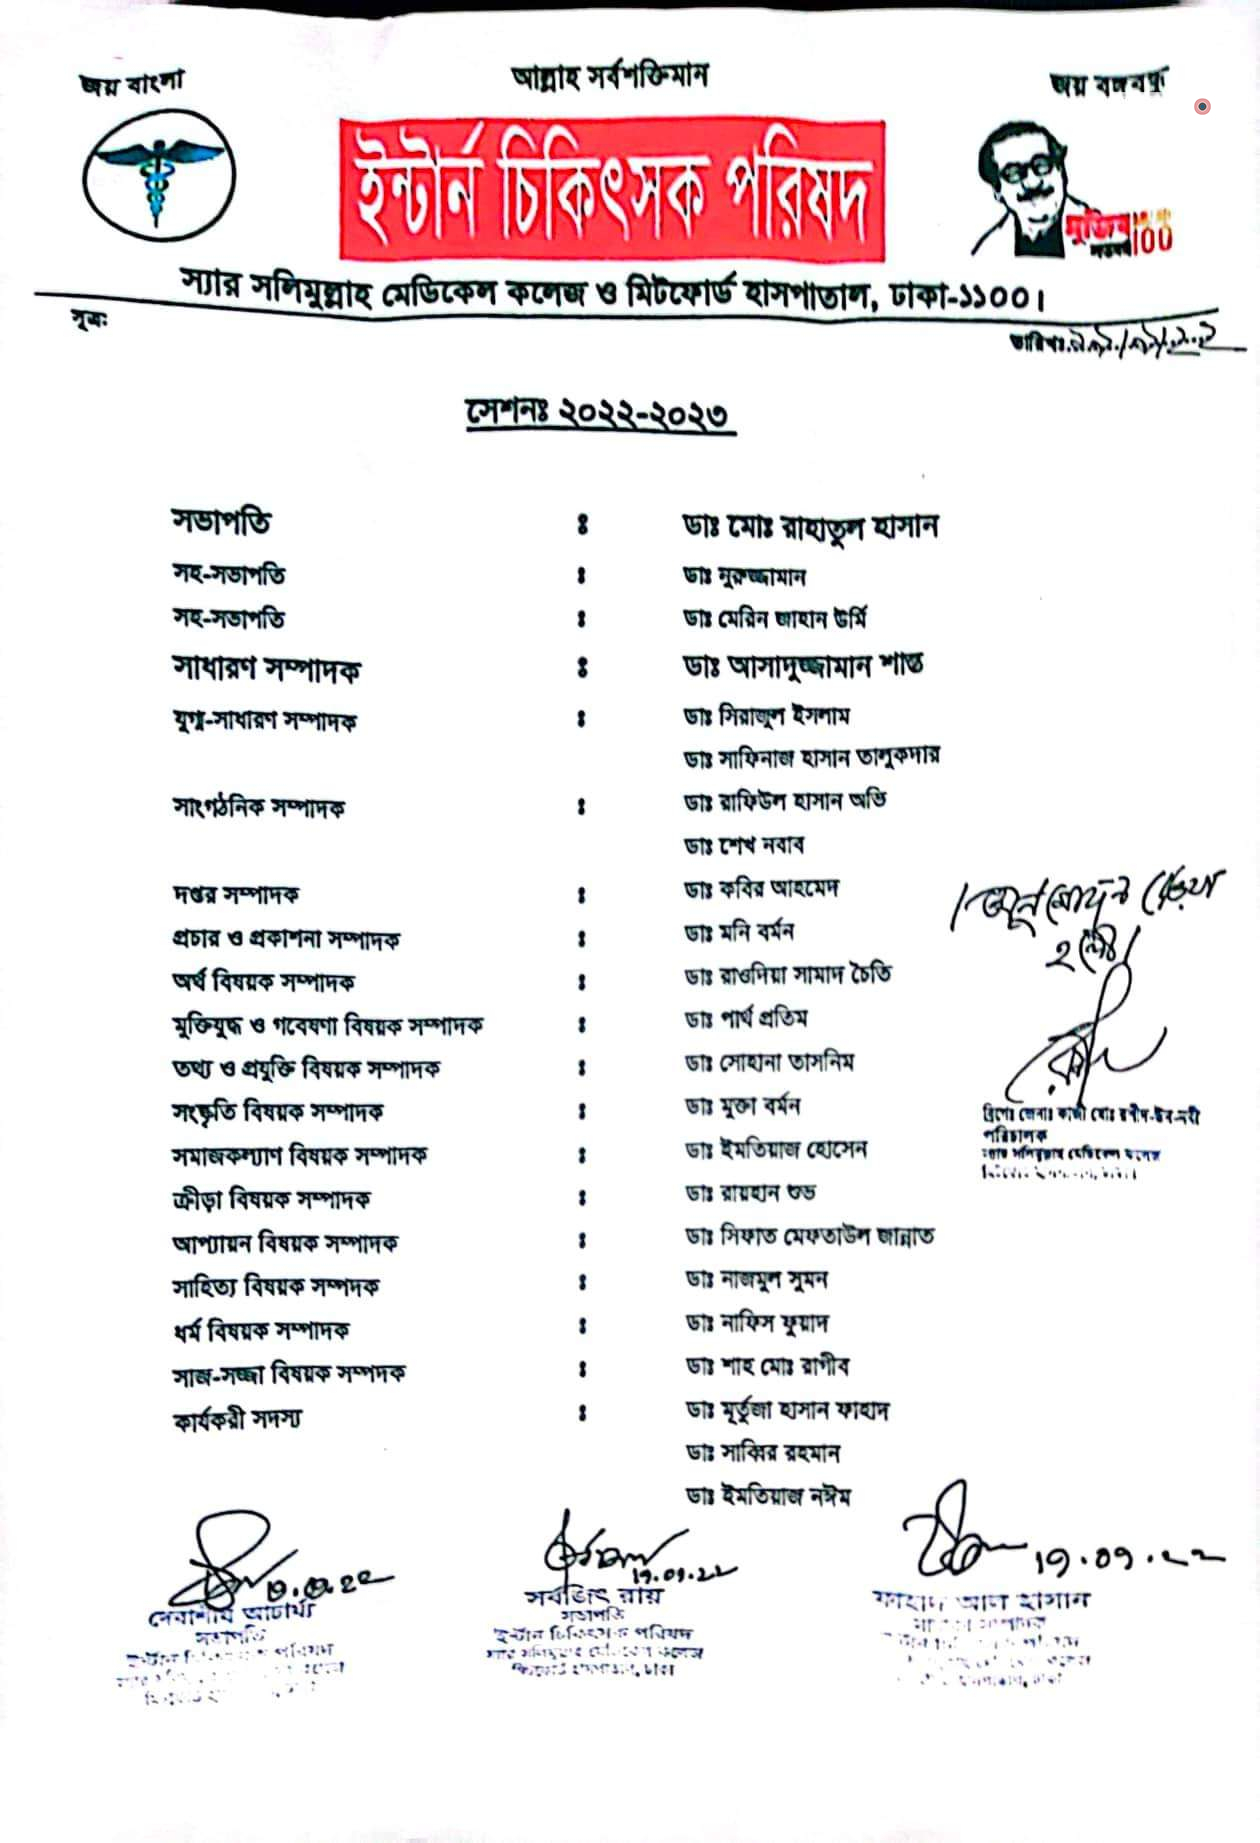 জয় বাংলা
আল্লাহ সর্বশক্তিমান
জয় বঙ্গবন্ধু
ইন্টার্ন চিকিৎসক পরিষদ
মুজিব
100
স্যার সলিমুল্লাহ মেডিকেল কলেজ ও মিটফোর্ড হাসপাতাল, ঢাকা-১১০০।
সূত্রঃ
তারিখঃ
সেশনঃ ২০২২-২০২৩
সভাপতি ঃ ডাঃ মোঃ রাহাতুল হাসান
সহ-সভাপতি ঃ ডাঃ নুরুজ্জামান
সহ-সভাপতি ঃ ডাঃ মেরিন জাহান উর্মি
সাধারণ সম্পাদক ঃ ডাঃ আসাদুজ্জামান শান্ত
যুগ্ম-সাধারণ সম্পাদক ঃ ডাঃ সিরাজুল ইসলাম
ডাঃ সাফিনাজ হাসান তালুকদার
সাংগঠনিক সম্পাদক ঃ ডাঃ রাফিউল হাসান অভি
ডাঃ শেখ নবাব
দপ্তর সম্পাদক ঃ ডাঃ কবির আহমেদ
প্রচার ও প্রকাশনা সম্পাদক ঃ ডাঃ মনি বর্মন
অর্থ বিষয়ক সম্পাদক ঃ ডাঃ রাওদিয়া সামাদ চৈতি
মুক্তিযুদ্ধ ও গবেষণা বিষয়ক সম্পাদক ঃ ডাঃ পার্থ প্রতিম
তথ্য ও প্রযুক্তি বিষয়ক সম্পাদক ঃ ডাঃ সোহানা তাসনিম
সংস্কৃতি বিষয়ক সম্পাদক ঃ ডাঃ মুক্তা বর্মন
সমাজকল্যাণ বিষয়ক সম্পাদক ঃ ডাঃ ইমতিয়াজ হোসেন
ক্রীড়া বিষয়ক সম্পাদক ঃ ডাঃ রায়হান শুভ
আপ্যায়ন বিষয়ক সম্পাদক ঃ ডাঃ সিফাত মেফতাউল জান্নাত
সাহিত্য বিষয়ক সম্পাদক ঃ ডাঃ নাজমুল সুমন
ধর্ম বিষয়ক সম্পাদক ঃ ডাঃ নাফিস ফুয়াদ
সাজ-সজ্জা বিষয়ক সম্পাদক ঃ ডাঃ শাহ মোঃ রাগীব
কার্যকরী সদস্য ঃ ডাঃ মূর্তুজা হাসান ফাহাদ
ডাঃ সাব্বির রহমান
ডাঃ ইমতিয়াজ নঈম
অনুমোদন দেওয়া
হলো।
ব্রিগেঃ জেনাঃ কাজী মোঃ রশীদ-উন-নবী
পরিচালক
স্যার সলিমুল্লাহ মেডিকেল কলেজ
১৭.০৭.২২
১৭.০৭.২২
দেবাশীষ আচার্য্য
সভাপতি
ইন্টার্ন চিকিৎসক পরিষদ
সর্বজিৎ রায়
সভাপতি
ইন্টার্ন চিকিৎসক পরিষদ
স্যার সলিমুল্লাহ মেডিকেল কলেজ
মিটফোর্ড হাসপাতাল, ঢাকা
ফাহাদ আল হাসান